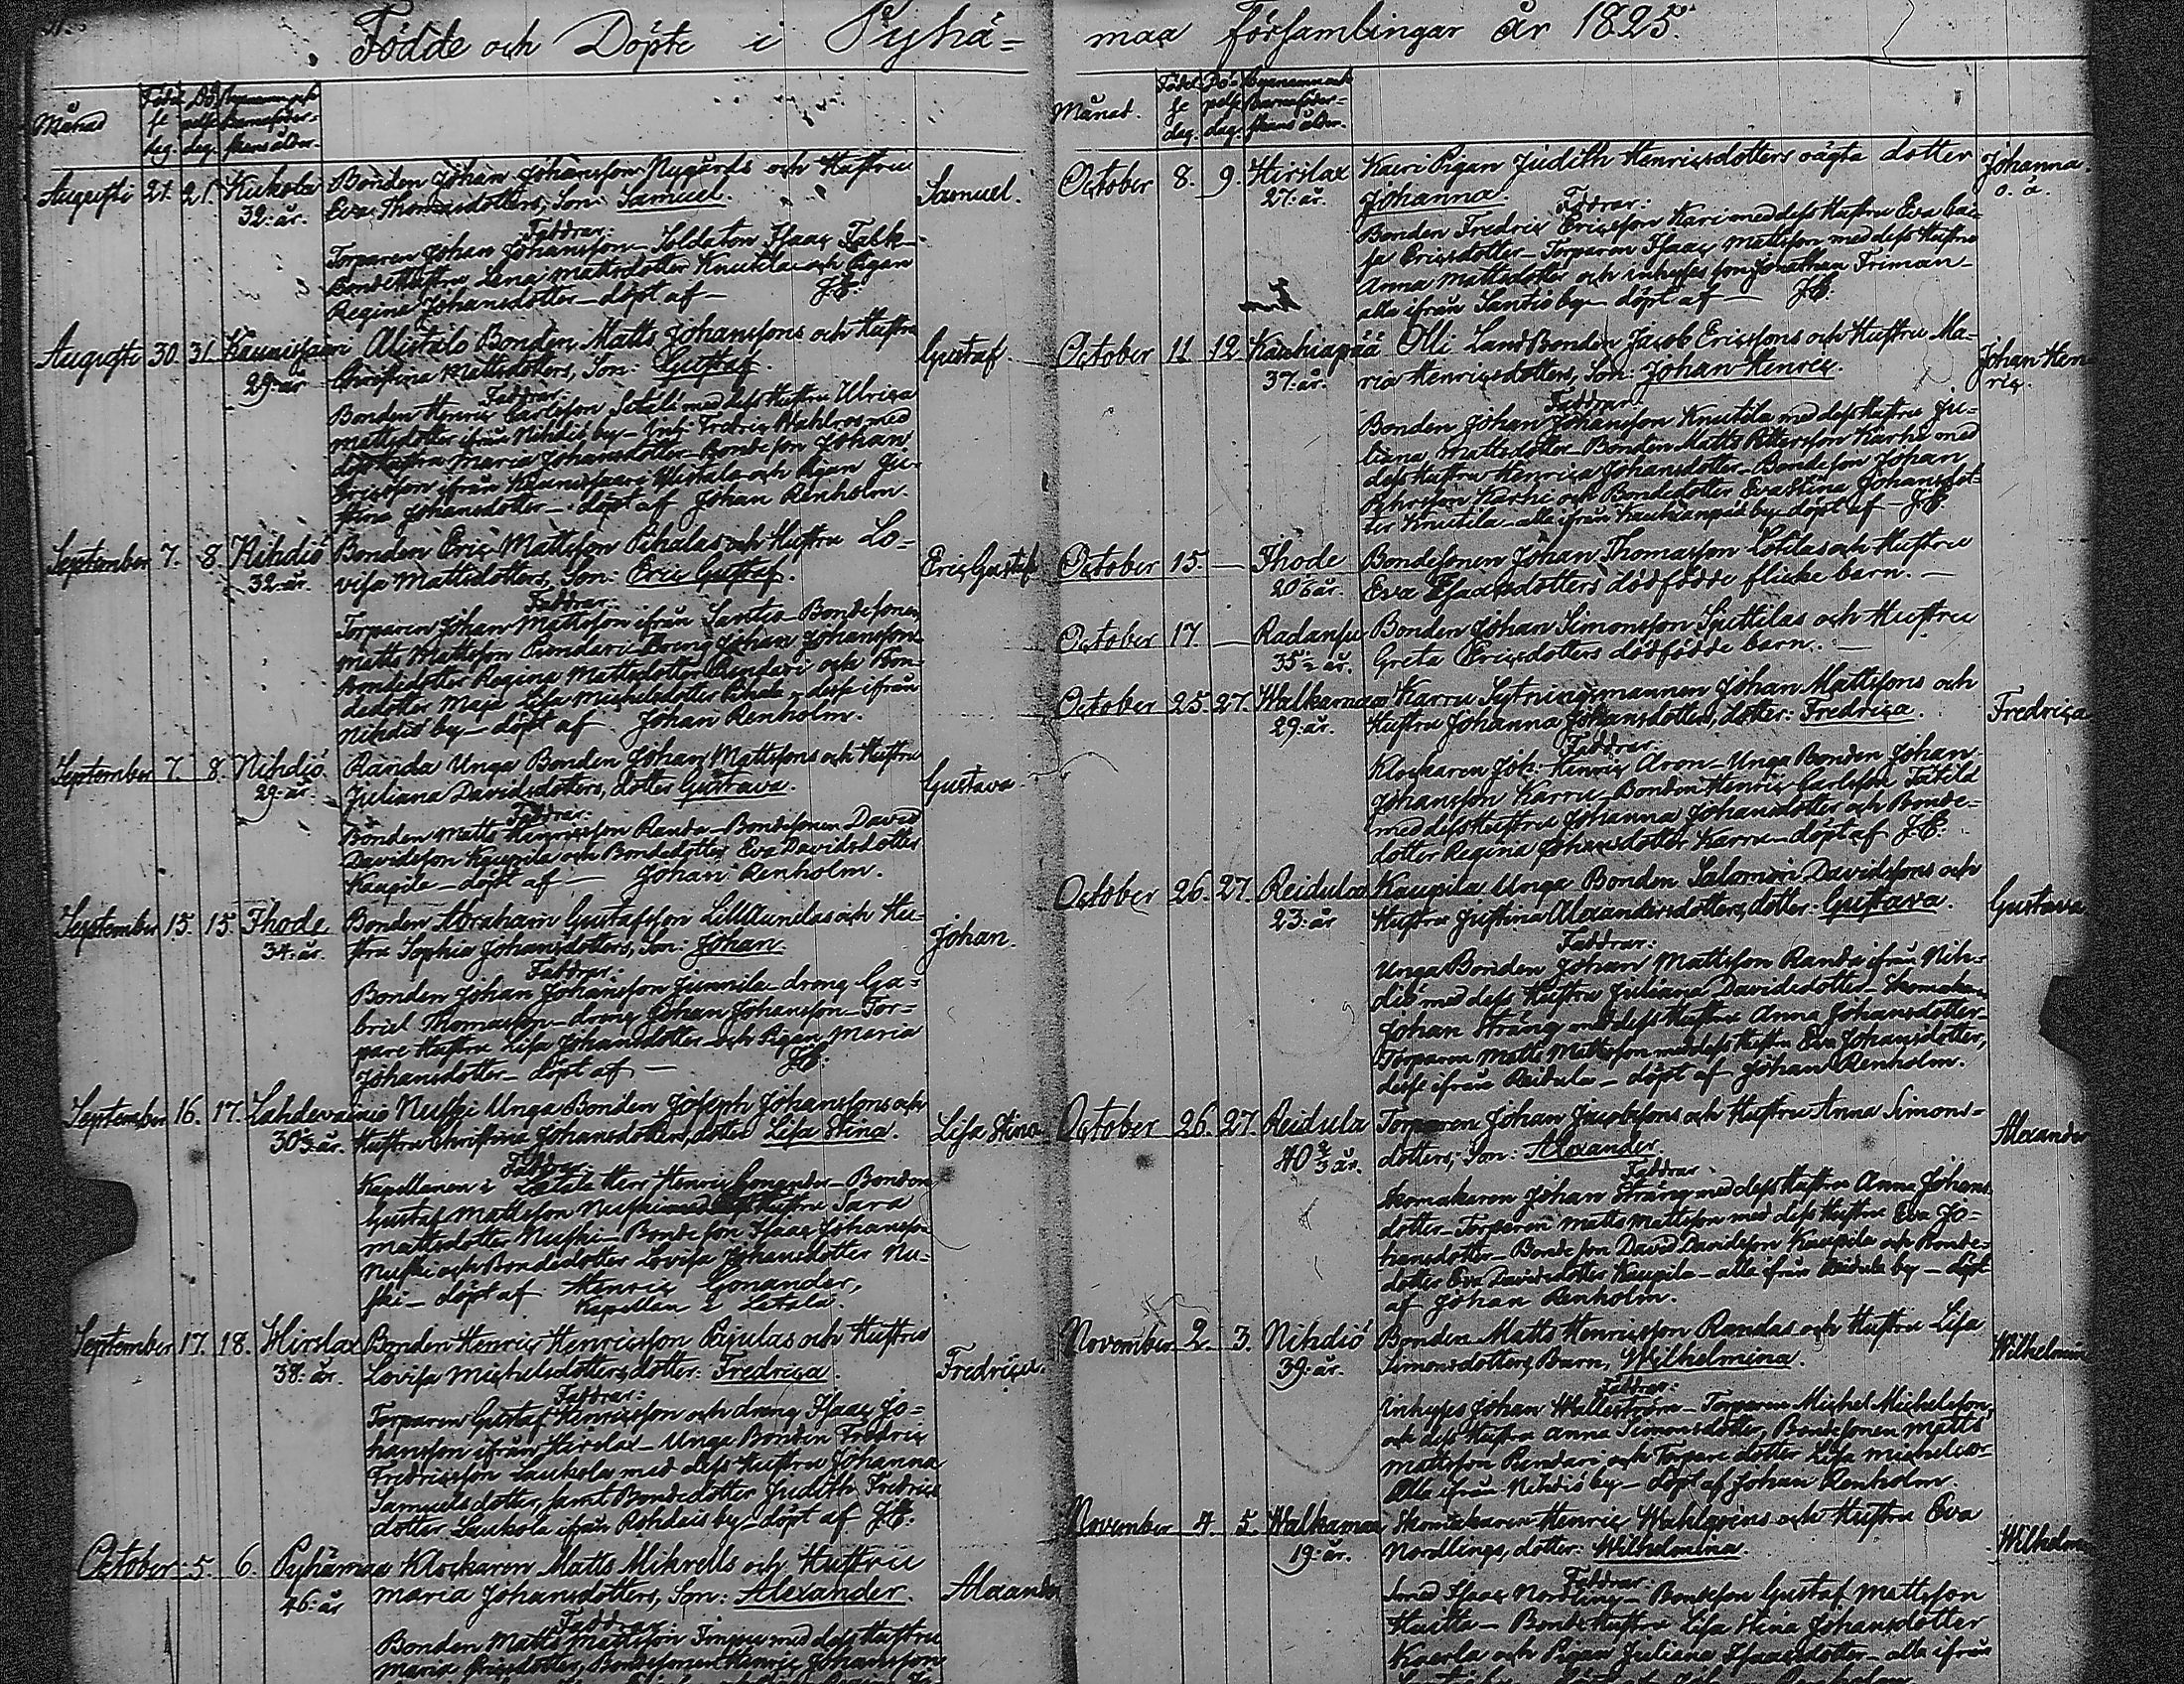 Födde och Döpte i Pyhä=
Månad
Födel
se
dag.
Dö
pelse
dag.
Bynamn och
Barnaföder=
skans ålder.
Augusti 21. 21. Kukola Bonden Johan Johansson Nygårds och Hustru Samuel.
32: år. Eva Thomasdotters, Son: Samuel.
Faddrar:
Torparen Johan Johansson – Soldaten Isaac Falk –
Bonde Hustru Lena Mattsdotter Knutila och Pigan
Regina Johansdotter – döpt af –
Augusti 30. 31. Kaunissaari Alistalo Bonden Matts Johanssons och Hustru Gustaf
29: år Christina Mattsdotters, Son: Gustaf.
Faddrar:
Bonden Henric Carlsson med dess Hustru Ulrica
Mattsdotter ifrån Nihdiö by – Fredric Wahlros med
dess Hustru Maria Johansdotter – Bonde son Johan
Ericsson ifrån Kaunissaari och Pigan Ju-
stina Johansdotter – döpt af Johan Renholm.
September 7. 8. Nihdiö Bonden Eric Mattsson Pihalas och Hustru Lo= Eric Gustaf
32: år. visa Mattsdotters, Son: Eric Gustaf.
Faddrar:
Torparen Johan Mattsson ifrån Santio – Bondesonen
Matts Mattsson Rendari – Dreng Johan Johansson
Bondedotter Regina Mattsdotter Rendari och Bon-
dedotter Maja Lisa Michelsdotter – desse ifrån
Nihdiö by – döpt af Johan Renholm.
September 7. 8. Nihdiö. Randa Unga Bonden Johan Mattssons och Hustru Gustava
29: år. Juliana Davidsdotters, dotter Gustava.
Faddrar:
Bonden Matts Henricsson Randa – Bondesonen David
Davidsson Kaupila och Bondedotter Eva Davidsdotter
Kaupila – döpt af – Johan Renholm.
September 15. 15. Thode Bonden Abraham Gustafsson och Hu= Johan.
34: år. stru Sophia Johansdotters, Son: Johan.
Faddrar:
Bonden Johan Johansson Junnila – dreng Ga=
briel Thomasson – dreng Johan Johansson – Tor=
pare Hustru Lisa Johansdotter och Pigan Maria
Johansdotter – döpt af –
September 16. 17. Lahdevainio Nuski Unga Bonden Joseph Johanssons och Lisa Stina
30 år. Hustru Christina Johansdotters, dotter Lisa Stina.
Faddrar:
Kapellanen i Letala Herr Henric Gonander – Bonden
Gustaf Mattsson Nuski med dess Hustru Sara
Mattsdotter Nuski – Bonde son Isaac Johansson
Nuski och Bondedotter Lovisa Johansdotter Nu=
ski – döpt af Henric Gonander,
Kapellan i Letala.
September 17. 18. Hirslax Bonden Henric Henricsson och Hustru Fredrica.
38: år. Lovisa Michelsdotters, dotter: Fredrica.
Faddrar:
Torparen Gustaf Henricsson och dreng Isaac Jo=
hansson ifrån Hirslax – Unga Bonden Fredric
Fredricsson Laukola med dess Hustru Johanna
Samuelsdotter, samt Bondedotter Judith Fredrics
dotter Laukola ifrån Rohdais by – döpt af
October 5. 6. Pyhämaa Klockaren Matts Mikrells och Hustru Alexander
46: år Maria Johansdotters, Son: Alexander.
Faddrar:
Bonden Matts Mattsson med dess Hustru
Maria Ericsdotter, Bondesonen Henric Johansson
maa församlingar år 1825.
Månad.
Födel
se
dag.
Dö-
pelse
dag.
Bynamn och
Barnaföder=
skans ålder.
October 8. 9. Hirslax Kaeri Pigan Judith Henricsdotters oägta dotter Johanna.
27: år. Johanna. o. ä.
Faddrar:
Bonden Fredric Ericsson Kari med dess Hustru Eva Cai-
sa Ericsdotter – Torparen Isaac Mattsson med dess Hustru
Anna Mattsdotter och inhyses son Jonathan Friman –
alla ifrån Santio by – döpt af –
October 11. 12. Kaukiapää Olli LandBonden Jacob Ericssons och Hustru Ma- Johan Hen
37: år. ria Henricsdotters, Son: Johan Henric. ric.
Faddrar:
Bonden Johan Johansson Knutila med dess Hustru Ju=
liana Mattsdotter – Bonden Matts Karhi med
dess Hustru Henrica Johansdotter – Bondeson Johan
Karhi och Bondedotter Eva Stina Johansdot=
ter Knutila – alla ifrån by – döpt af –
October 15. — Thode Bondesonen Johan Thomasson och Hustru
20 år. Eva Isaacsdotters dödfödde flicke barn. —
October 17. — Radansu Bonden Johan Simonsson Spittilas och Hustru
35½ år. Greta Ericsdotters dödfödde barn. —
October 25. 27. Walkamaa Karru Sytningsmannen Johan Mattssons och Fredrica
29: år. Hustru Johanna Johansdotters, dotter: Fredrica.
Faddrar:
Klockaren Joh: Henric Aron – Unga Bonden Johan
Johansson Karru – Bonden Henric Carlsson
med dess Hustru Johanna Johansdotter och Bonde=
dotter Regina Johansdotter Karru – döpt af
October 26. 27. Reidula Kaupila Unga Bonden Salomon Davidssons och Gustava
23: år Hustru Justina Alexandersdotters, dotter: Gustava.
Faddrar:
Unga Bonden Johan Mattsson Randa ifrån Nih=
diö med dess Hustru Juliana Davidsdotter – Skomakaren
Johan Sträng med dess Hustru Anna Johansdotter –
Torparen Matts Mattsson med dess Hustru Eva Johansdotter,
desse ifrån Reidula – döpt af Johan Renholm.
October 26. 27. Reidula Torparen Johan Jacobssons och Hustru Anna Simons= Alexander
40 år. dotters, Son: Alexander.
Faddrar
Skomakaren Johan Sträng med dess Hustru Anna Johans
dotter – Torparen Matts Mattsson med dess Hustru Eva Jo=
hansdotter – Bonde son David Davidsson Kaupila och Bonde=
dotter Eva Davidsdotter Kaupila – alla ifrån Reidula by – döpt
af Johan Renholm.
November 2. 3. Nihdiö Bonden Matts Henricsson Randas och Hustru Lisa Wilhelmina
39: år. Simonsdotters, Barn, Wilhelmina.
Faddrar:
Inhyses Johan Wallström – Torparen Michel Michelsson
och dess Hustru Anna Simonsdotter, Bondesonen Matts
Mattsson Rendari och Torpare dotter Lisa
Alla ifrån Nihdiö by – döpt af Johan Renholm
November 4. 5. Walkamaa Skomakaren Henric Wahlqvins och Hustru Eva Wilhelm
19: år. Nordlings, dotter: Wilhelmina.
Faddrar:
Smed Isaac Nordling – Bondeson Gustaf Mattsson
– Bonde Hustru Lisa Stina Johansdotter
Kaerla och Pigan Juliana Isaacsdotter – alla ifrån